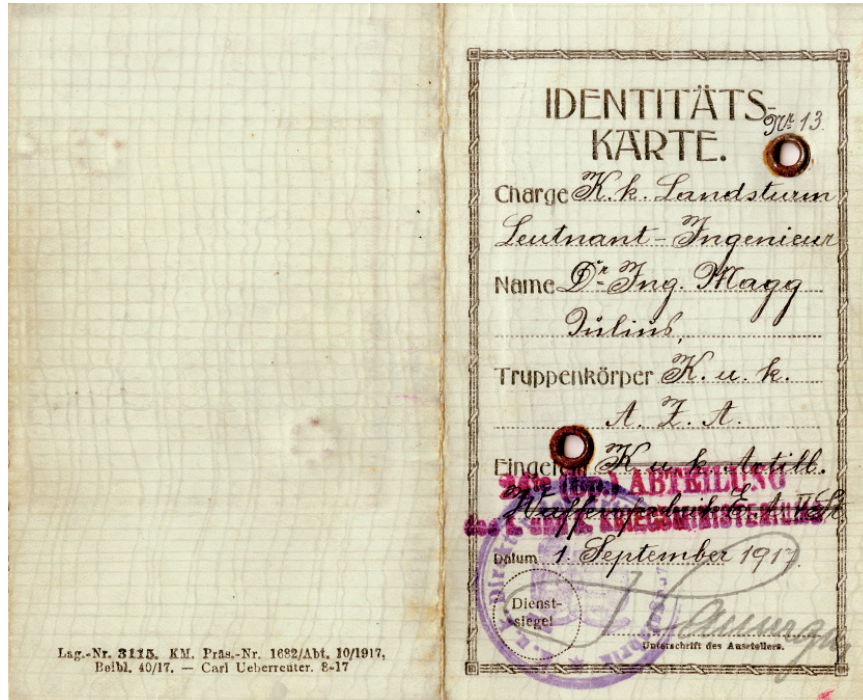 Lag.-Nr. 3115. KM. Präs.-Nr. 1682/Abt. 10/1917,
Beibl. 40/17. — Carl Ueberreuter. 8-17
IDENTITÄTS-
KARTE.
Nr. 13.
Charge K. k. Landsturm
Leutnant-Ingenieur
Name Dr. Ing. Magg
Julius,
Truppenkörper K. u. k.
A. Z. A.
Eingeteilt K. u. k. Artill.
ABTEILUNG
Waffenfabrik
des k. und k. KRIEGSMINISTERIUMS
Datum 1. September 1917
Dienst-
siegel
Unterschrift des Ausstellers.